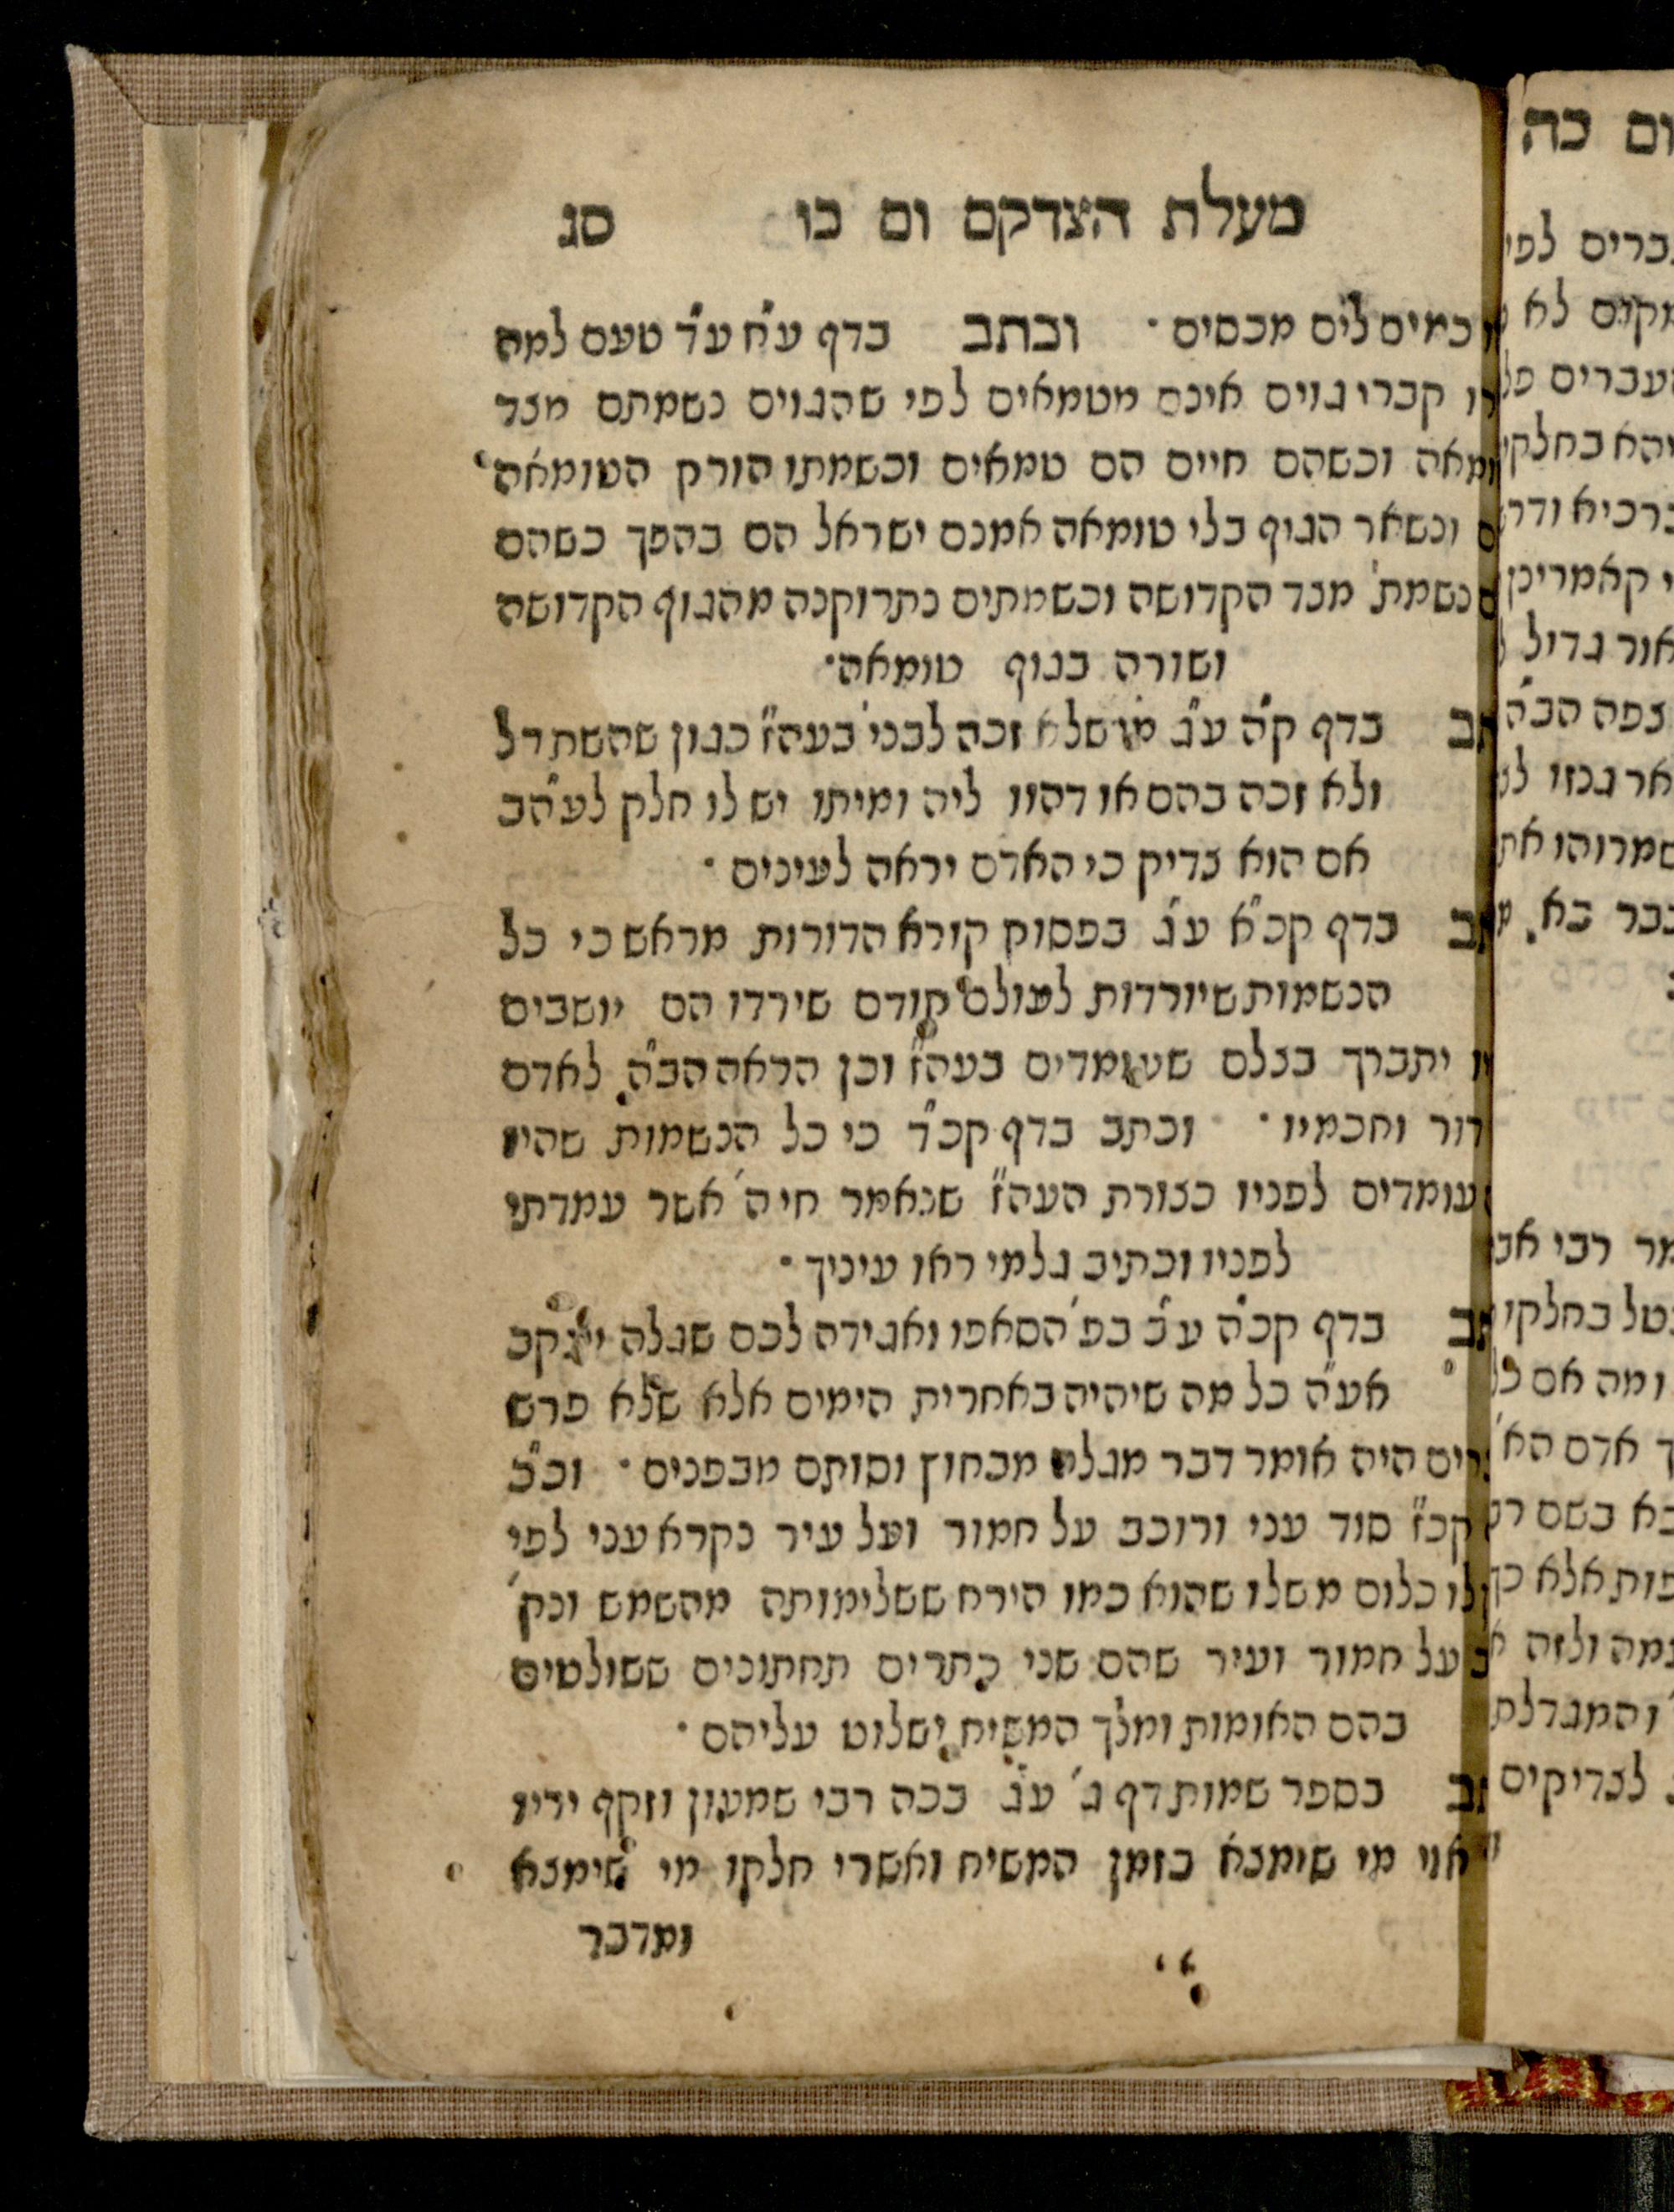 מעלת הצדקם ום כו סג
כמים לים מכסים· וכתב בדף ע"ח ע"ד טעם למה
קברי גוים אינם מטמאים לפי שהגוים נשמתם מצד
ומאה וכשהם חיים הם טמאים וכשמתו הורק הטומאה
ונשאר הגוף בלי טומאה אמנם ישראל הם בהפך כשהם
נשמת' מצד הקדושה וכשמתים נתרוקנה מהגוף הקדושה
ושורה בגוף טומאה·
תב בדף ק"ה ע"ג מי שלא זכה לבני' בעה"ז כגון שהשתדל
ולא זכה בהם או דהוו ליה ומיתו יש לו חלק לע"הב
אם הוא צדיק כי האדם יראה לעינים·
תב בדף קכ"א ע"ג בפסוק קורא הדורות מראש כי כל
הנשמות שיורדות לעולם קודם שירדו הם יושבים
יתברך בצלם שעומדים בעה"ז וכן הראה הב"ה לאדם
דור וחכמיו· וכתב בדף קכ"ד כי כל הנשמות שהיו
עומדים לפניו כצורת העה"ז שנאמר חי ה' אשר עמדתי
לפניו וכתיב גלמי ראו עיניך·
תב בדף קכ"ה ע"ב בפ' האספו ואגידה לכם שגלה יעקב
אע"ה כל מה שיהיה באחרית הימים אלא שלא פרש
היה אומר דבר מגלה מבחוץ וסותם מבפנים· וכ"כ
קכ"ז סוד עני ורוכב על חמור ועל עיר נקרא עני לפי
לו כלום משלו שהוא כמו הירח ששלימותה מהשמש ונק'
על חמור ועיר שהם שני כתרים תחתונים ששולטים
בהם האומות ומלך המשיח ישלוט עליהם·
תב בספר שמות דף ג' ע"ג בכה רבי שמעון וזקף ידיו
אוי מי שימצא בזמן המשיח ואשרי חלקו מי שימצא
ומדבר
ום כה
ברים לפי
מקום לא
העברים
יהא בחלקי
ברכיא
קאמרינן
אור גדול
צפה הב"ה
גנזו
שמרוהו את
כבר בא
מר רבי
בחלקו
ומה אם
אדם הא'
בא בשם
אלא כך
ולזה
והמגדלת
לצדיקים